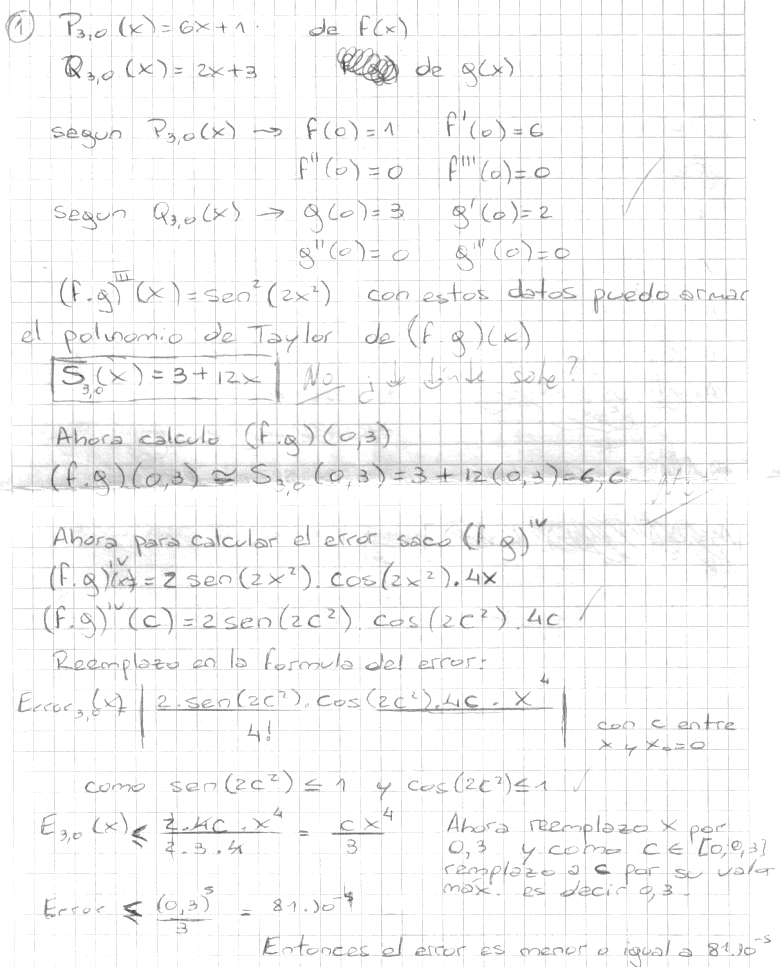 ① P3,0 (x) = 6x + 1. de f(x)
Q3,0 (x) = 2x + 3 de g(x)
segun P3,0(x) → f(0) = 1 f'(0) = 6
f''(0) = 0 f'''(0) = 0
segun Q3,0(x) → g(0) = 3 g'(0) = 2
g''(0) = 0 g'''(0) = 0
(f.g)^III (x) = sen²(2x²) con estos datos puedo armar
el polinomio de Taylor de (f.g)(x)
S3,0(x) = 3 + 12x No ¿de dónde sale?
Ahora calculo (f.g)(0,3)
(f.g)(0,3) ≃ S3,0 (0,3) = 3 + 12(0,3) = 6,6
Ahora para calcular el error saco (f.g)^IV
(f.g)^IV(x) = 2 sen(2x²). cos(2x²). 4x
(f.g)^IV (c) = 2 sen(2c²). cos(2c²). 4c ✓
Reemplazo en la formula del error:
Error3,0(x) = | 2. sen(2c²). cos(2c²). 4c . x⁴ / 4! | con c entre
x y x0=0
como sen(2c²) ≤ 1 y cos(2c²) ≤ 1 ✓
E3,0 (x) ≤ 2.4c . x⁴ / 2.3.4 = c x⁴ / 3 Ahora reemplazo x por
0,3 y como c ∈ [0,0,3]
remplazo a c por su valor
máx. es decir 0,3.
Error ≤ (0,3)⁵ / 3 = 81.10⁻⁵
Entonces el error es menor o igual a 81.10⁻⁵